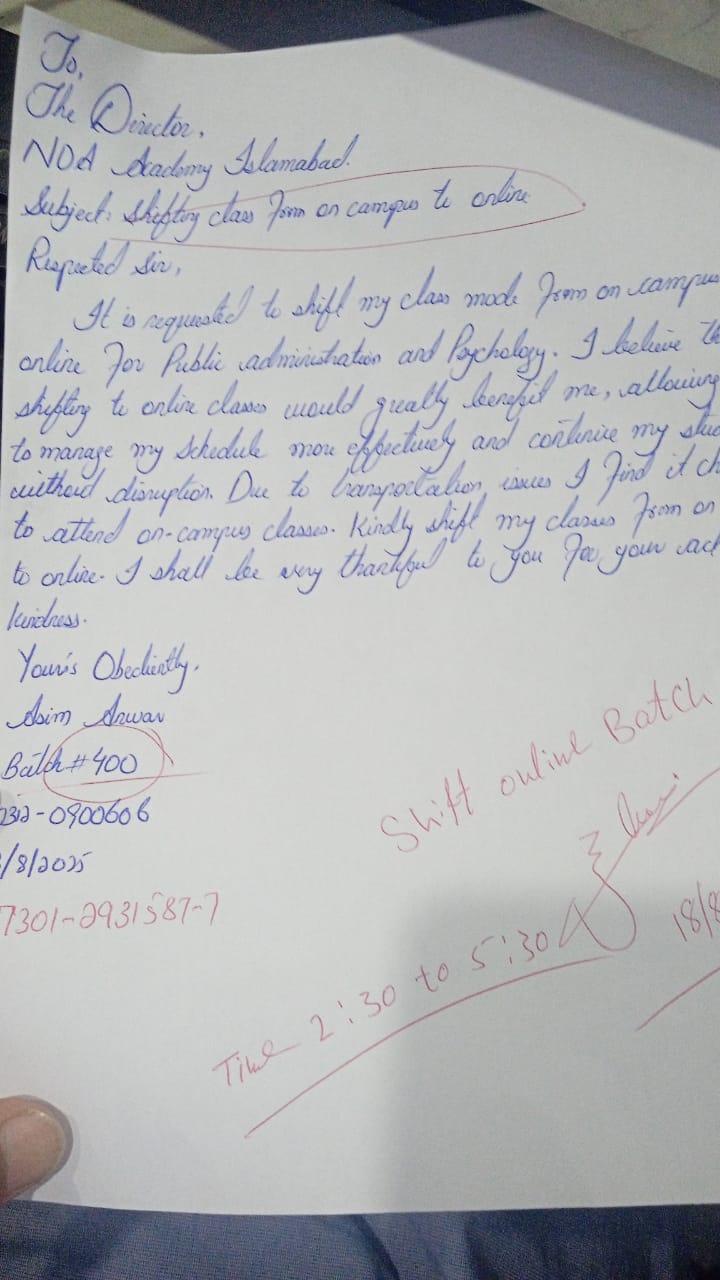 To,
The Director,
NOA Academy Islamabad.
Subject: Shifting class From on campus to online
Respected Sir,
It is requested to shift my class mode From on campus
online For Public administration and Psychology. I believe th
shifting to online classes would greally benefit me, allowing
to manage my Schedule more effectively and continue my stud
without disruption. Due to transportation issues I Find it ch
to attend on-campus classes. Kindly shift my classes From on
to online. I shall be very thankful to you For your act
kindness.
Your's Obediently,
Asim Anwar
Batch # 400
0900606
/8/2025
7301-2931587-7
Shift online Batch
Time 2:30 to 5:30
18/8